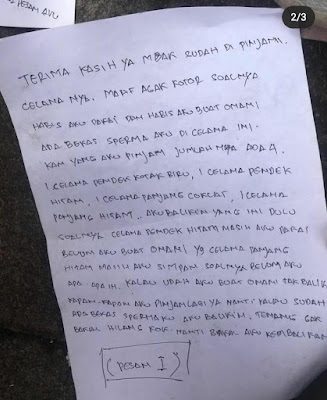 2/3
TERIMA KASIH YA MBAK SUDAH DI PINJAMI.
CELANA NYA. MAAF AGAK KOTOR SOALNYA
HABIS AKU PAKAI DAN HABIS AKU BUAT ONANI
ADA BEKAS SPERMA AKU DI CELANA INI.
KAN YANG AKU PINJAM JUMLAH NYA ADA 4.
1 CELANA PENDEK KOTAK BIRU, 1 CELANA PENDEK
HITAM, 1 CELANA PANJANG COKLAT, 1 CELANA
PANJANG HITAM. AKU BALIKIN YANG INI DULU
SOALNYA CELANA PENDEK HITAM MASIH AKU PAKAI
BELUM AKU BUAT ONANI YG CELANA PANJANG
HITAM MASIH AKU SIMPAN SOALNYA BELUM AKU
APA APAIN. KALAU UDAH AKU BUAT ONANI TAK BALIK
KAPAN-KAPAN AKU PINJAM LAGI YA NANTI KALAU SUDAH
ADA BEKAS SPERMA KU AKU BALIKIN. TENANG GAK
BAKAL HILANG KOK NANTI BAKAL AKU KEMBALIKAN
(PESAN I)